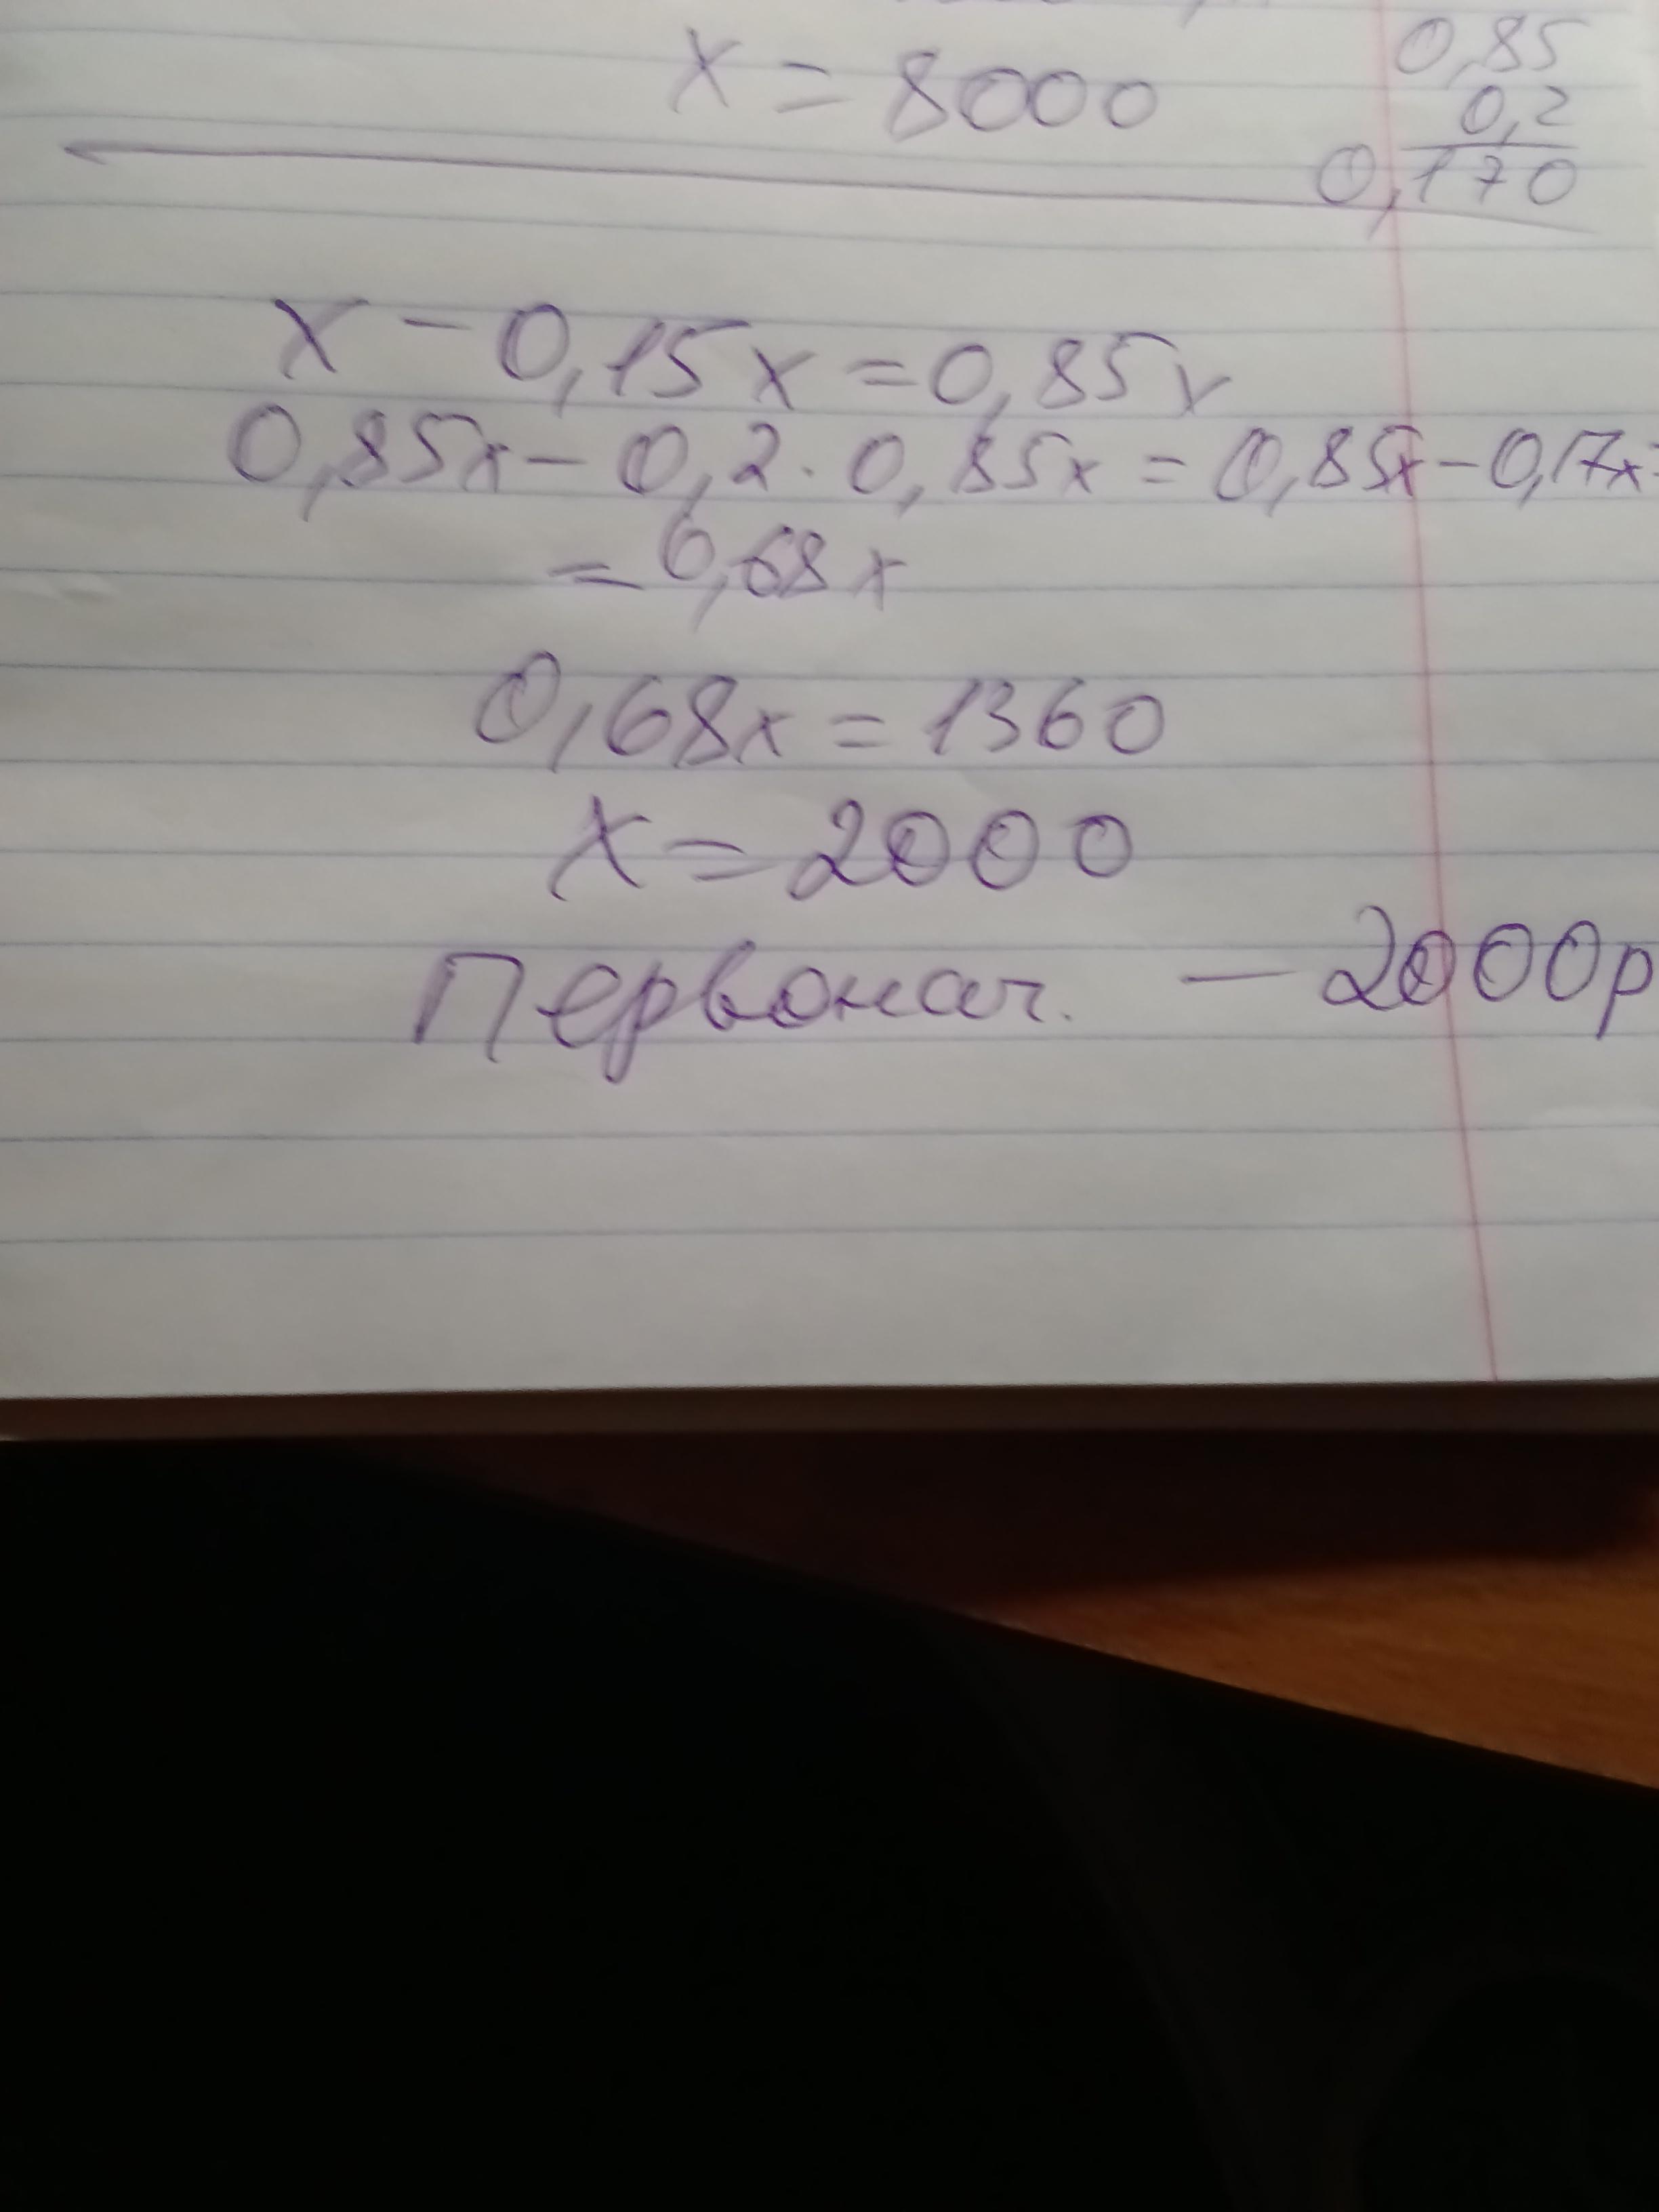 x = 8000
0,85
0,2
0,170
x - 0,15x = 0,85x
0,85x - 0,2 · 0,85x = 0,85x - 0,17x =
= 0,68x
0,68x = 1360
x = 2000
Первонач. - 2000р